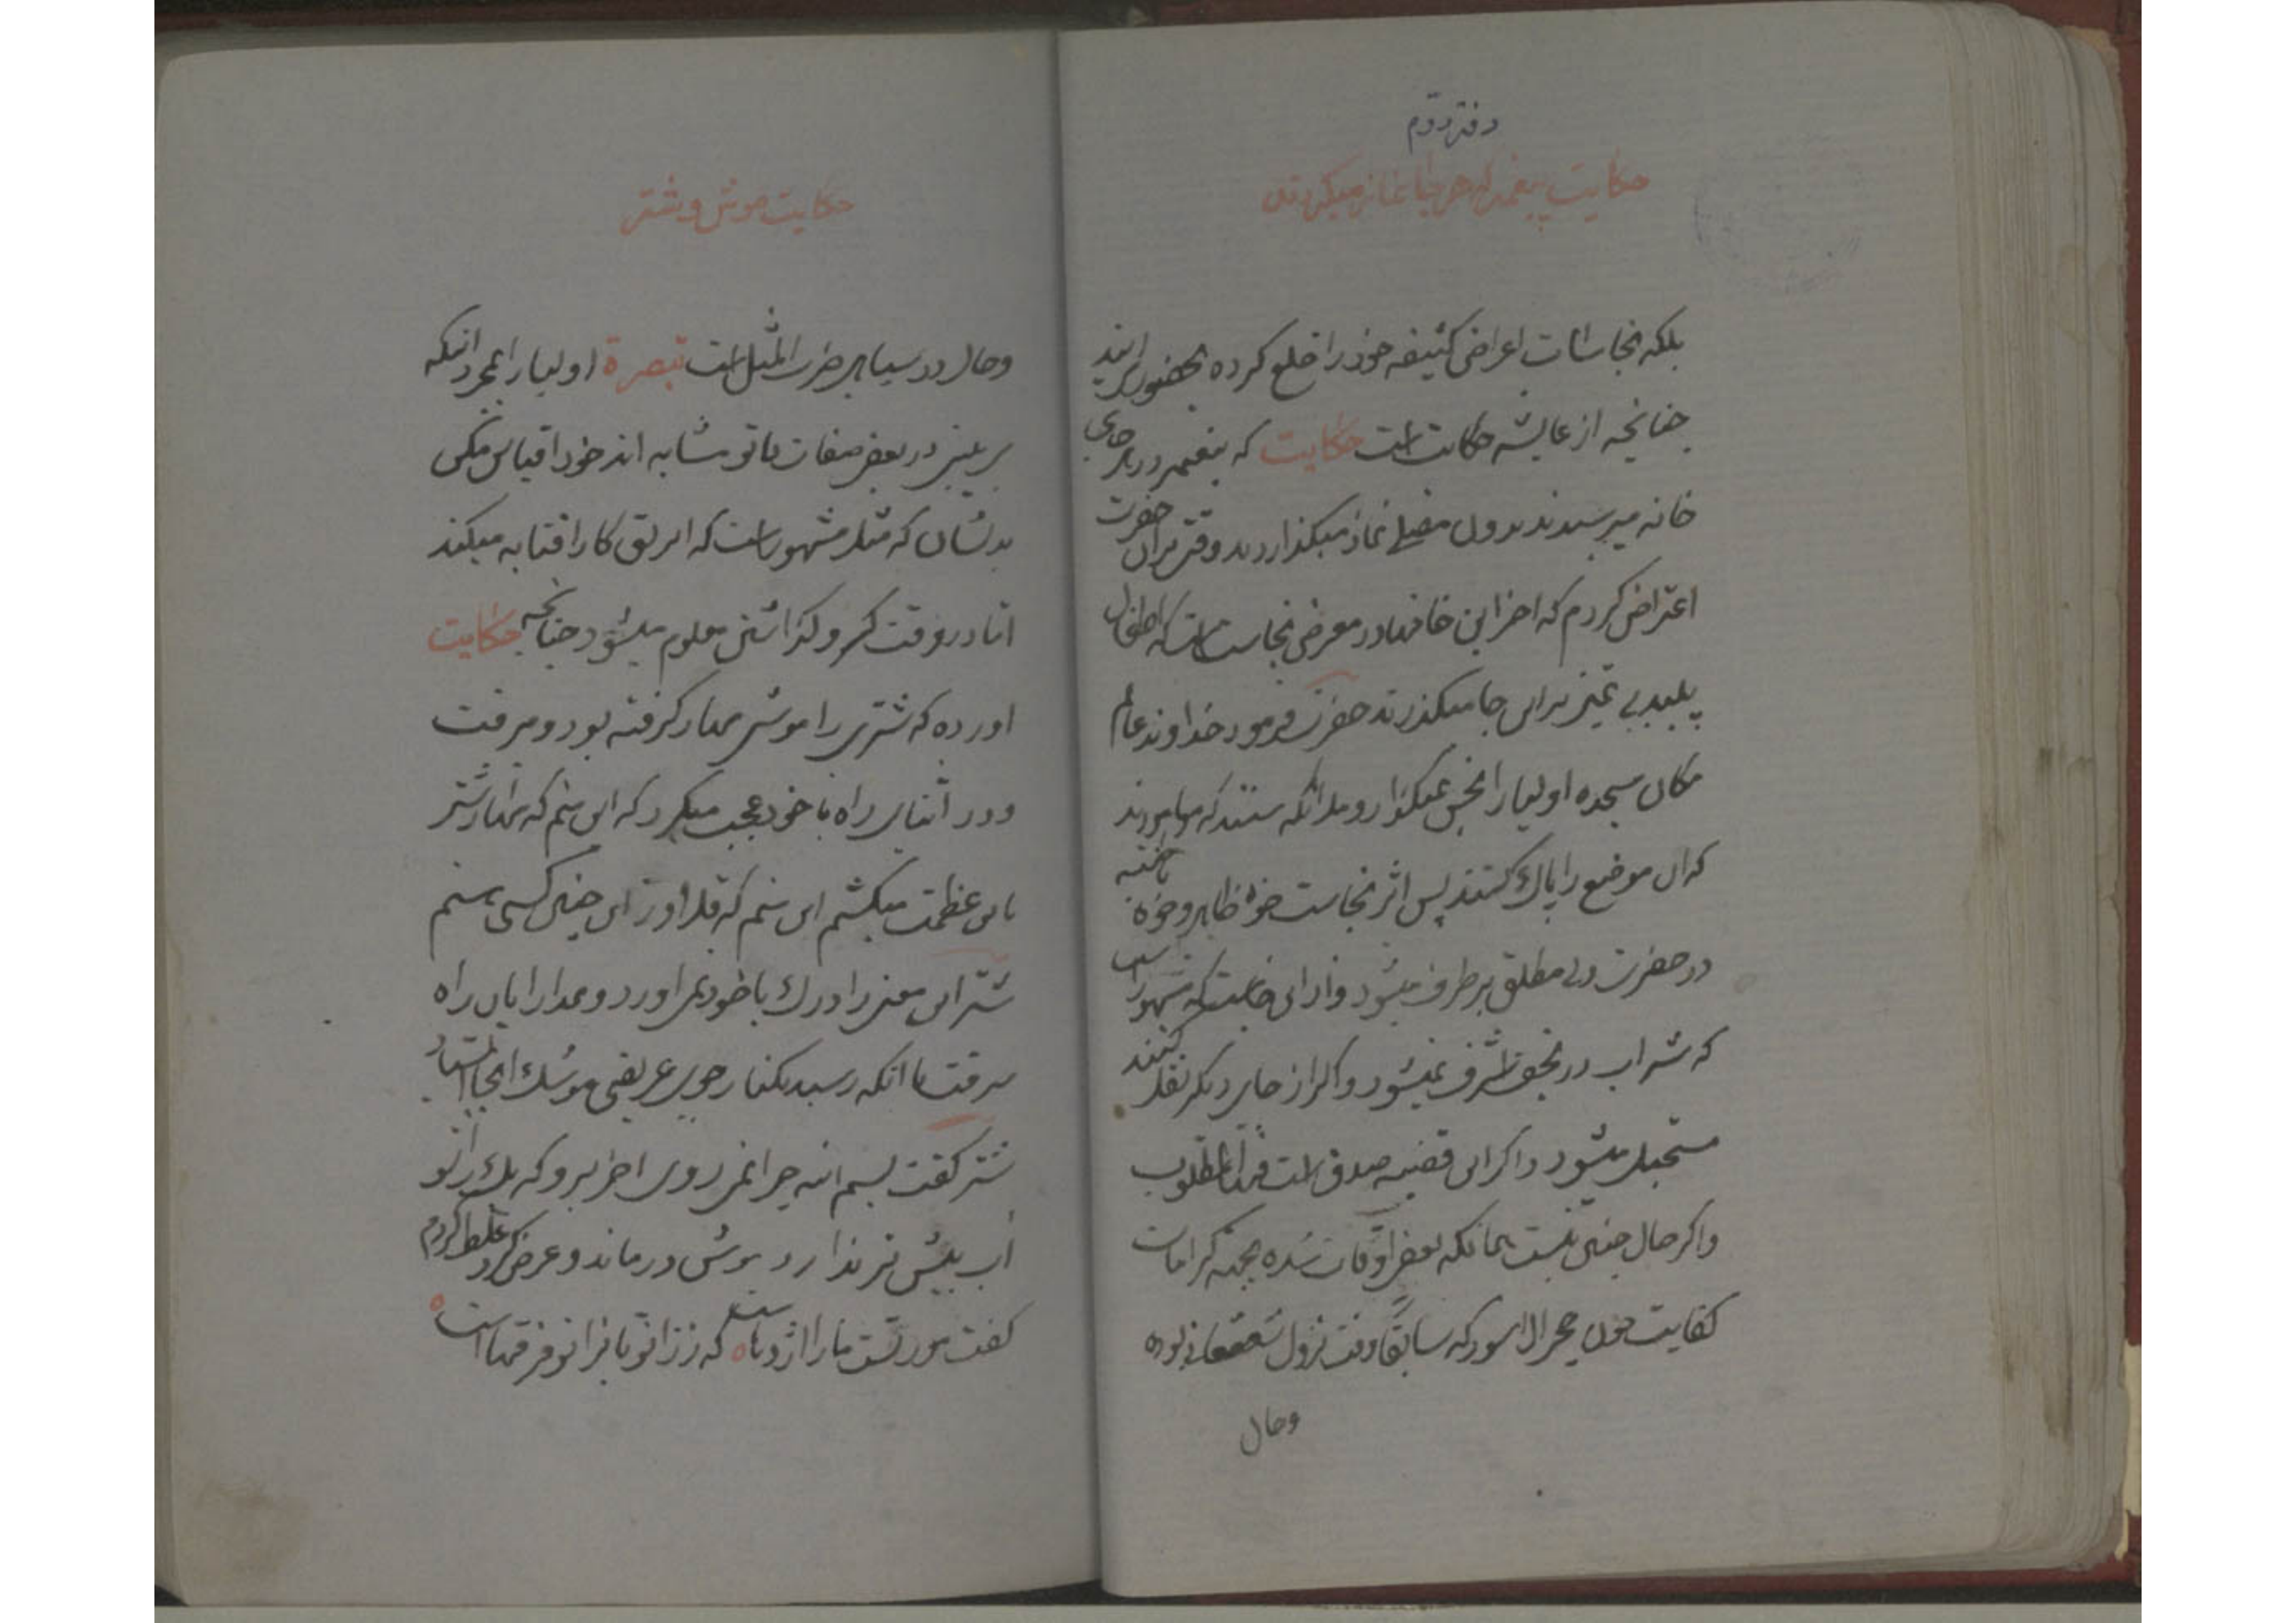 دفتر دوم
حکایت پیغمبر که هر جا نماز میکردند
بلکه نجاسات اعراض کثیفه خود را خلع کرده بحضور آیند
چنانچه از عایشه حکایت است حکایت که پیغمبر در هر جای
خانه میرسیدند بدون مصلی نماز میگذاردند وقتی بران حضرت
اعتراض کردم که اخر این خانها در معرض نجاست است که اطفال
پلید بی تمیز بر این جا میگذرند حضرت فرمود خداوند عالم
مکان سجده اولیا را نجس نمیگذارد و ملائکه هستند که میامورند
که ان موضع را پاک کنند پس اثر نجاست خواه ظاهر و خواه باشد
در حضرت ولی مطلق بر طرف میشود و از این است که مشهور است
که شراب در نجف اشرف نمیشود و اگر از جای دیگر نقل کنند
مستحیل میشود و اگر این قضیه صدق است فهذا المطلوب
و اگر حال چنین نیست همانکه بعض اوقات شده بجهته کرامات
کفایت چون حجر الاسود که سابقا وقت نزول شفاف بوده
وحال
حکایت موش و شتر
وحال در سیاهی ضرب المثل است تبصرة اولیا را بمجرد انکه
بر بینی در بعض صفات با تو مشابه اند خود را قیاس مکن
بدیشان که مثل مشهور است که ابریق کار افتابه میکند
اما در وقت گرو گذاشتن معلوم میشود چنانچه حکایت
اورده که شتری را موشی مهار گرفته بود و میرفت
و در اثنای راه با خود عجب میکرد که این منم که مهار شتر
باین عظمت میکشم این منم که قلاوز این چنین کسی هستم
شتر این معنی را درک با خود نمی اورد و بمدارا پای راه
میرفت تا انکه رسید بکنار جوی عریضی موشک انجا استاد
شتر گفت بسم الله چرا نمی روی اخر برو که یک زانو
آب بیش تر ندارد موش در ماند و عرض کرد غلط کردم
گفت مور تست ما را اژدهاست ه که ز زانو تا بزانو فرقهاست ه